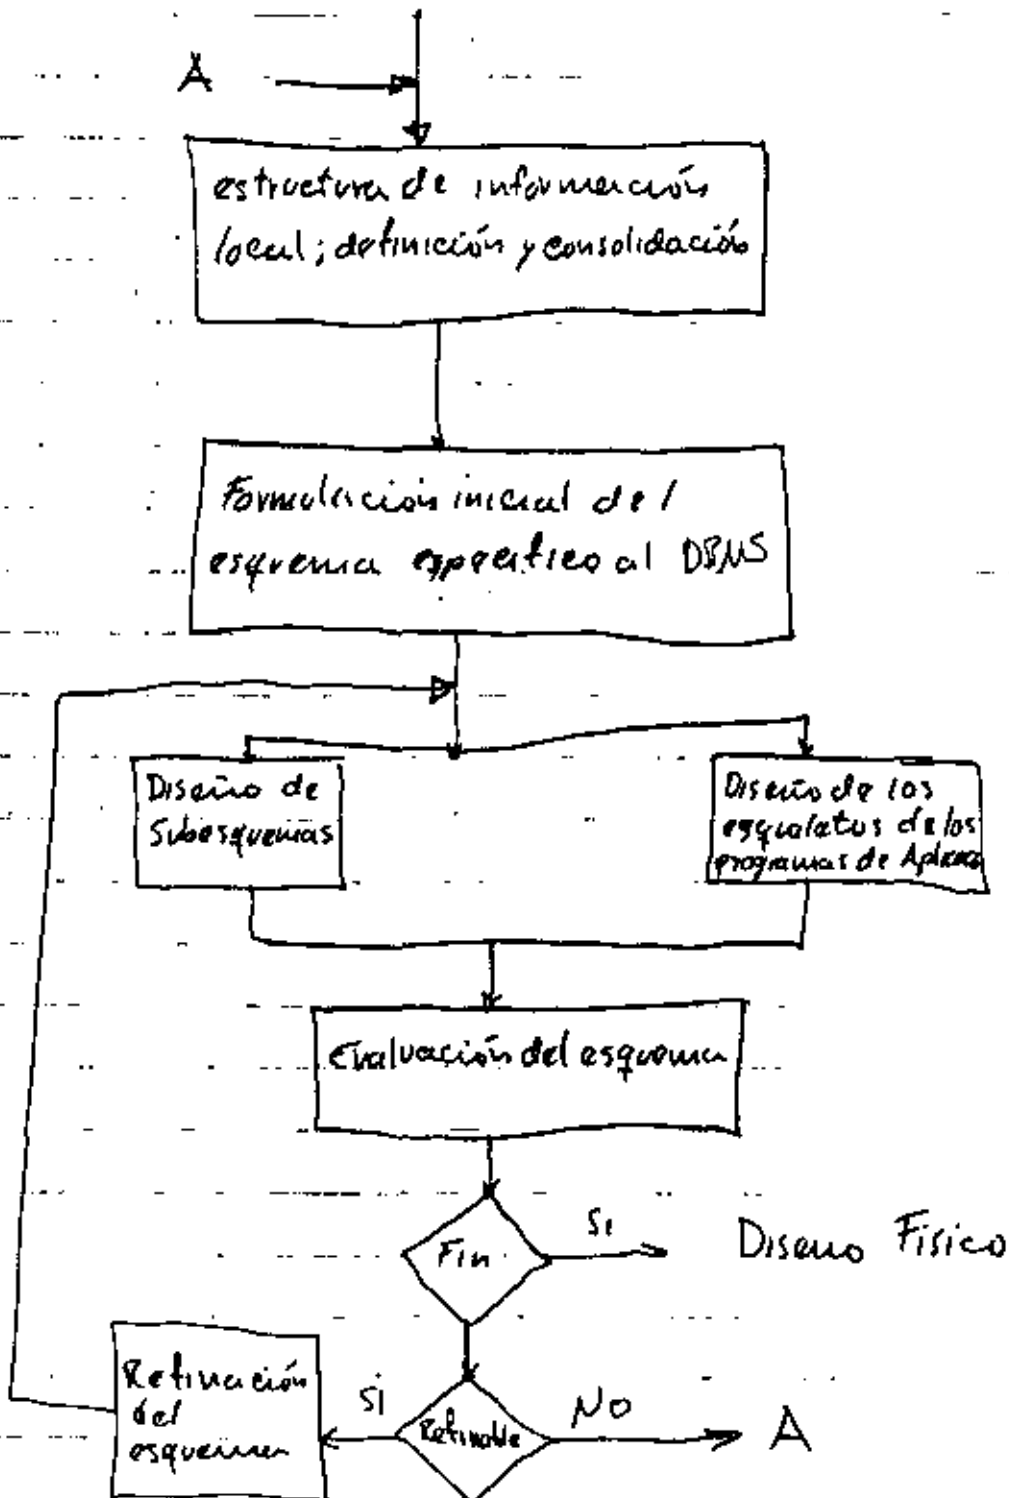 A
estructura de información
local; definición y consolidación
Formulación inicial del
esquema específico al DBMS
Diseño de
Subesquemas
Diseño de los
esqueletos de los
programas de
Evaluación del esquema
Fin
Si
Diseño Físico
Refinación
del
esquema
Si
Refinable
NO
A